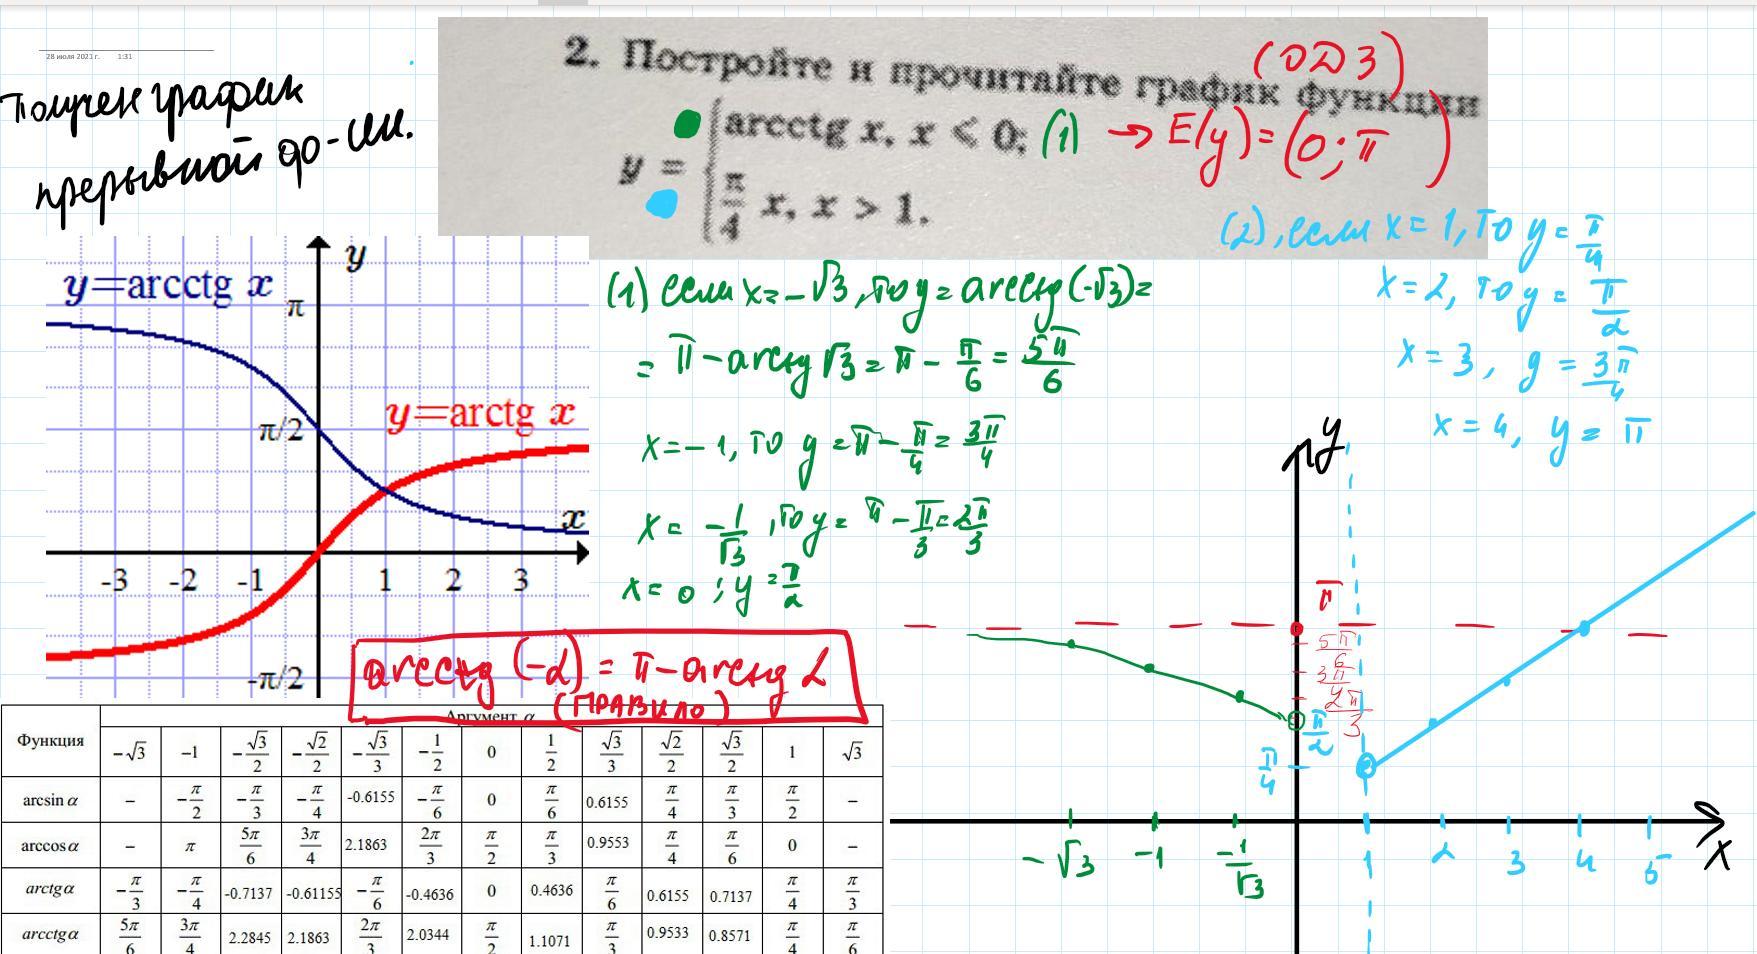 28 июля 2021 г. 1:31
Получен график
прерывной ф-ии.
2. Постройте и прочитайте график функции
(ОДЗ)
y = { arcctg x, x < 0; (1) → E(y) = (0; π)
π/4 x, x > 1.
(2), если x = 1, то y = π/4
x = 2, то y = π/2
x = 3, y = 3π/4
x = 4, y = π
(1) если x = -√3, то y = arcctg(-√3) =
= π - arcctg √3 = π - π/6 = 5π/6
x = -1, то y = π - π/4 = 3π/4
x = -1/√3, то y = π - π/3 = 2π/3
x = 0; y = π/2
arcctg (-α) = π - arcctg α
(ПРАВИЛО)
y=arcctg x
y
π
π/2
y=arctg x
x
-3 -2 -1 1 2 3
-π/2
y
π
5π/6
3π/4
2π/3
π/2
π/4
-√3 -1 -1/√3 1 2 3 4 5 x
Функция Аргумент α
-√3 -1 -√3/2 -√2/2 -√3/3 -1/2 0 1/2 √3/3 √2/2 √3/2 1 √3
arcsin α – -π/2 -π/3 -π/4 -0.6155 -π/6 0 π/6 0.6155 π/4 π/3 π/2 –
arccos α – π 5π/6 3π/4 2.1863 2π/3 π/2 π/3 0.9553 π/4 π/6 0 –
arctg α -π/3 -π/4 -0.7137 -0.61155 -π/6 -0.4636 0 0.4636 π/6 0.6155 0.7137 π/4 π/3
arcctg α 5π/6 3π/4 2.2845 2.1863 2π/3 2.0344 π/2 1.1071 π/3 0.9533 0.8571 π/4 π/6